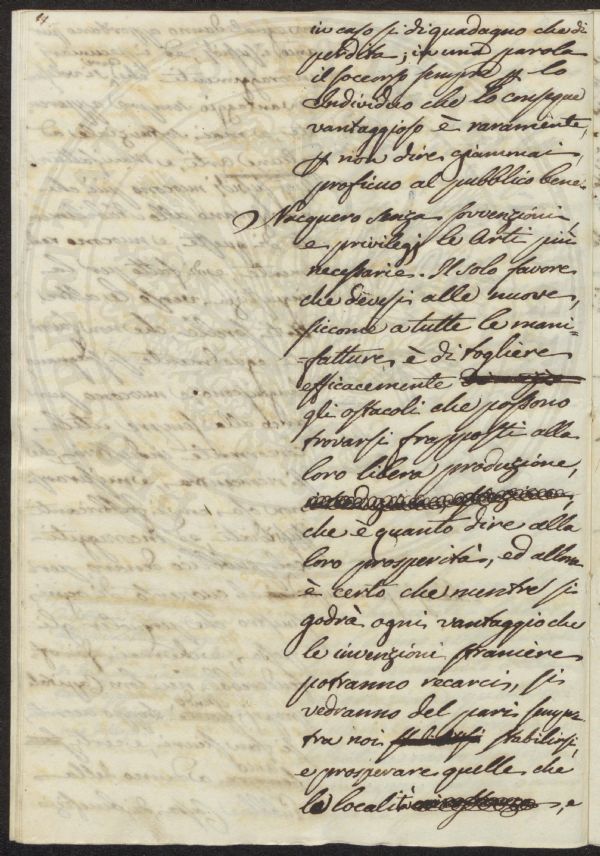 in caso si di guadagno che di
perdita; in una parola
il soccorso sempre p lo
Individuo che lo consegue
vantaggioso è raramente,
p non dire giammai
proficuo al pubblico bene.
Nacquero senza sovvenzioni,
e privilegj le Arti più
necessarie. Il solo favore
che devesi alle nuove,
siccome a tutte le mani=
=fatture, è di togliere
efficacemente
gli ostacoli che possono
trovarsi frapposti alla
loro libera produzione,
che è quanto dire alla
loro prosperità, ed allora
è certo che mentre si
godrà ogni vantaggio che
le invenzioni straniere
potranno recarci, si
vedranno del pari sempre
tra noi stabilirsi,
e prosperare quelle che
le località, e